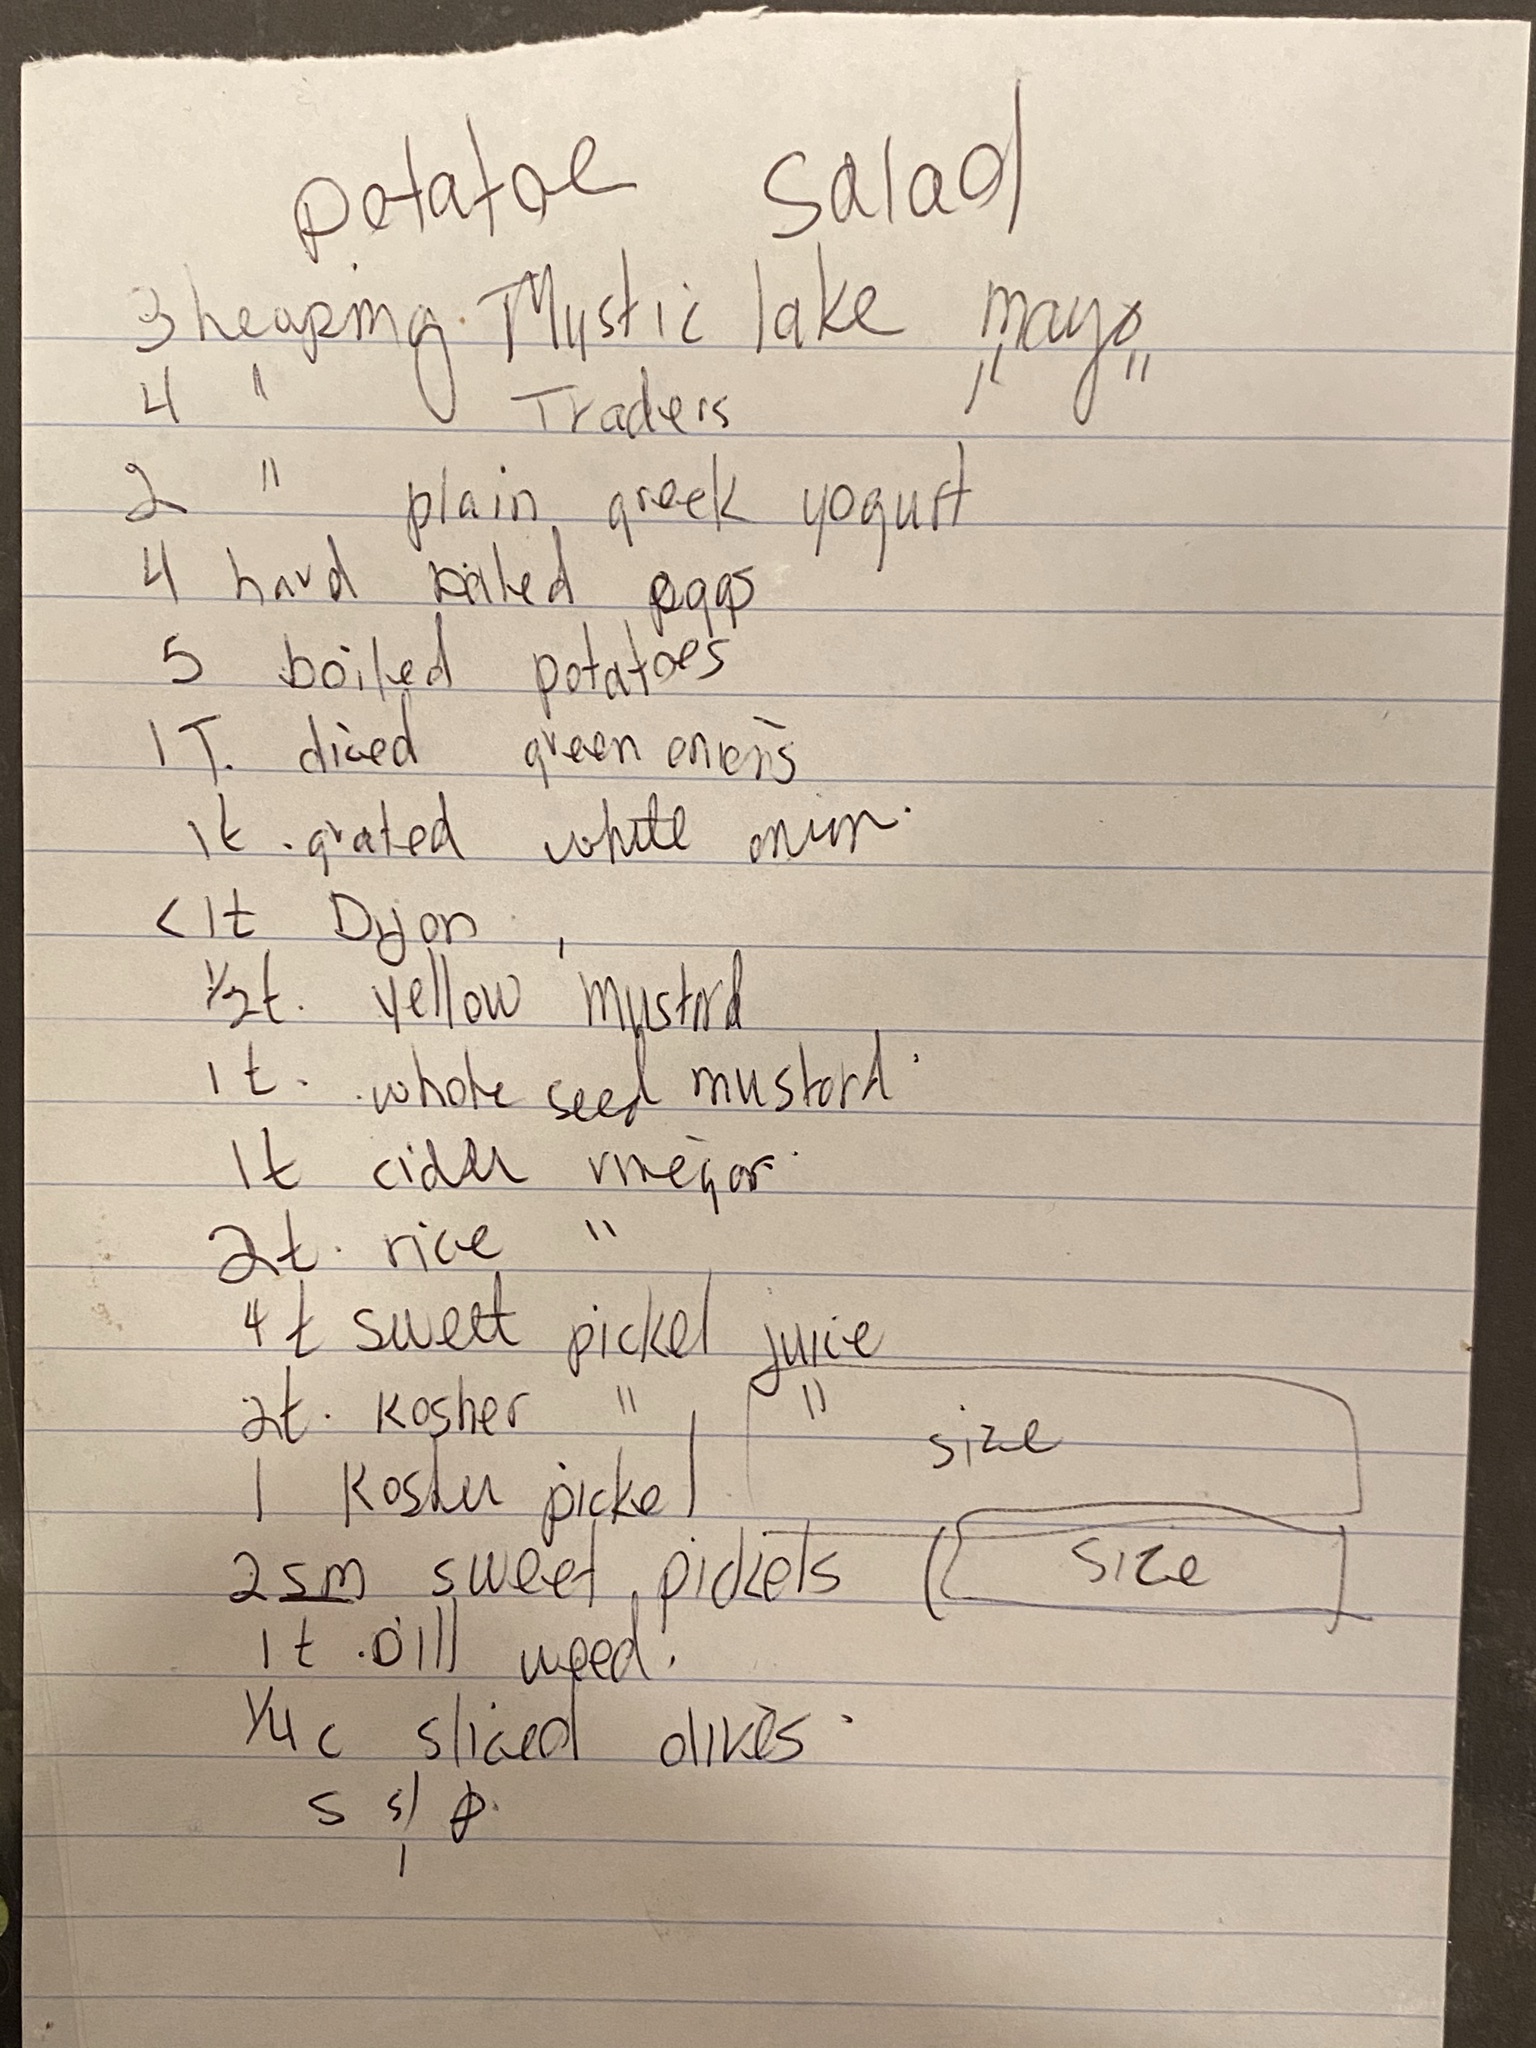 potatoe salad
3 heaping Mystic lake mayo
4 " Traders " "
2 " plain greek yogurt
4 hard boiled eggs
5 boiled potatoes
1 T. diced green onions
1t. grated white onion.
<1t Dijon
1/2t. yellow mustard
1t. whole seed mustard.
1t cider vinegar.
2t. rice "
4t sweet pickel juice
2t. Kosher " "
1 Kosher pickel size
2 sm sweet pickels (size)
1t. Dill weed.
1/4 c sliced olives.
S & p.